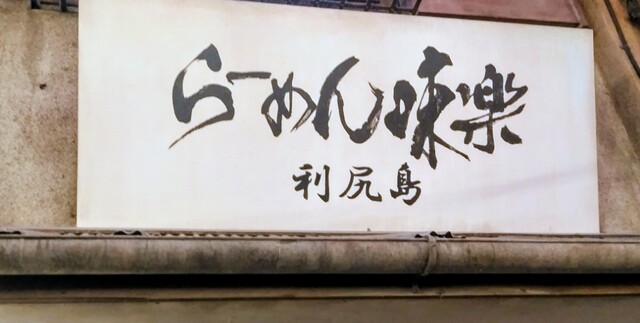 らーめん味楽
利尻島